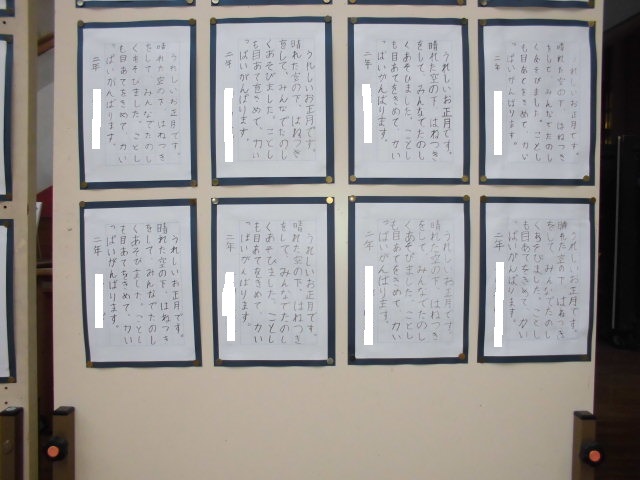 うれしいお正月です。
晴れた空の下、はねつき
をして、みんなでたのし
くあそびました。ことし
も目あてをきめて、力い
っぱいがんばります。
二年
うれしいお正月です。
晴れた空の下、はねつき
をして、みんなでたのし
くあそびました。ことし
も目あてをきめて、力い
っぱいがんばります。
二年
うれしいお正月です。
晴れた空の下、はねつき
をして、みんなでたのし
くあそびました。ことし
も目あてをきめて、力い
っぱいがんばります。
二年
うれしいお正月です。
晴れた空の下、はねつき
をして、みんなでたのし
くあそびました。ことし
も目あてをきめて、力い
っぱいがんばります。
二年
うれしいお正月です。
晴れた空の下、はねつき
をして、みんなでたのし
くあそびました。ことし
も目あてをきめて、力い
っぱいがんばります。
二年
うれしいお正月です。
晴れた空の下、はねつき
をして、みんなでたのし
くあそびました。ことし
も目あてをきめて、力い
っぱいがんばります。
二年
うれしいお正月です。
晴れた空の下、はねつき
をして、みんなでたのし
くあそびました。ことし
も目あてをきめて、力い
っぱいがんばります。
二年
うれしいお正月です。
晴れた空の下、はねつき
をして、みんなでたのし
くあそびました。ことし
も目あてをきめて、力い
っぱいがんばります。
二年